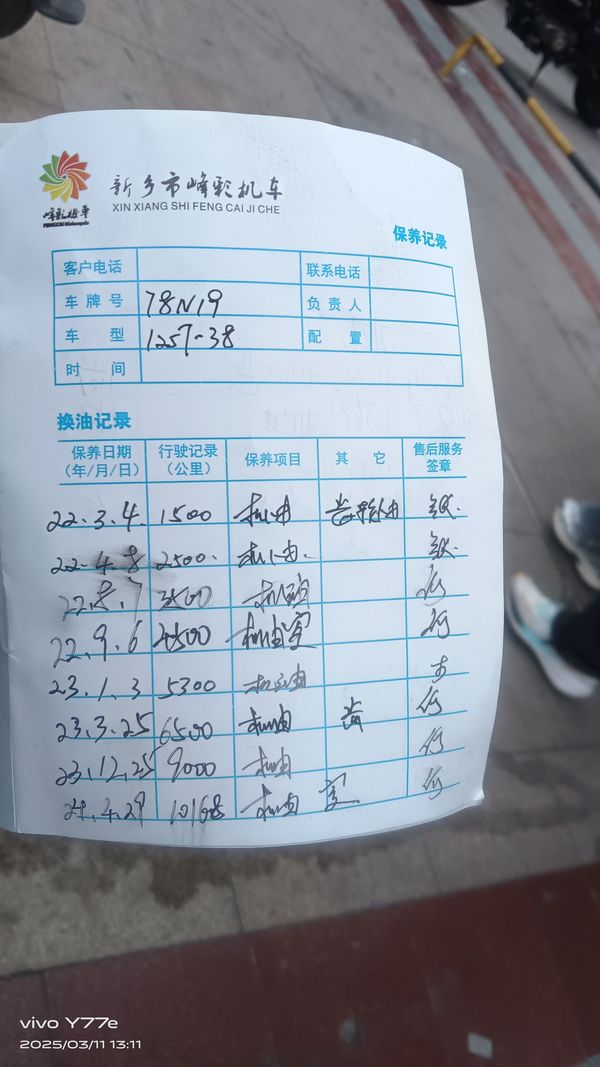 新乡市峰彩机车
XIN XIANG SHI FENG CAI JI CHE
峰彩机车
FENGCAI Motorcycle
保养记录
客户电话 联系电话
车牌号 78N19 负责人
车型 125T-38 配置
时间
换油记录
保养日期（年/月/日） 行驶记录（公里） 保养项目 其它 售后服务签章
22.3.4. 1500 机油 齿轮油
22.4.8 2500. 机油.
22.8.7 3500 机油
22.9.6 4500 机油
23.1.3 5300 机油
23.3.25 6500 机油 齿
23.12.25 9000 机油
24.4.29 10168 机油
vivo Y77e
2025/03/11 13:11